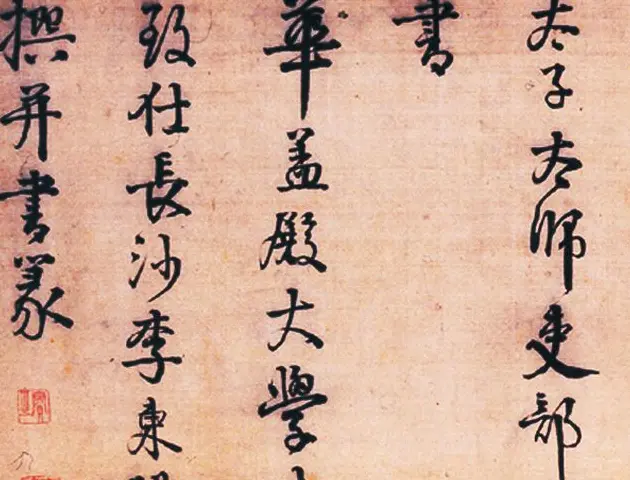 太子太師吏部
書
華蓋殿大學
致仕長沙李東
撰并書篆